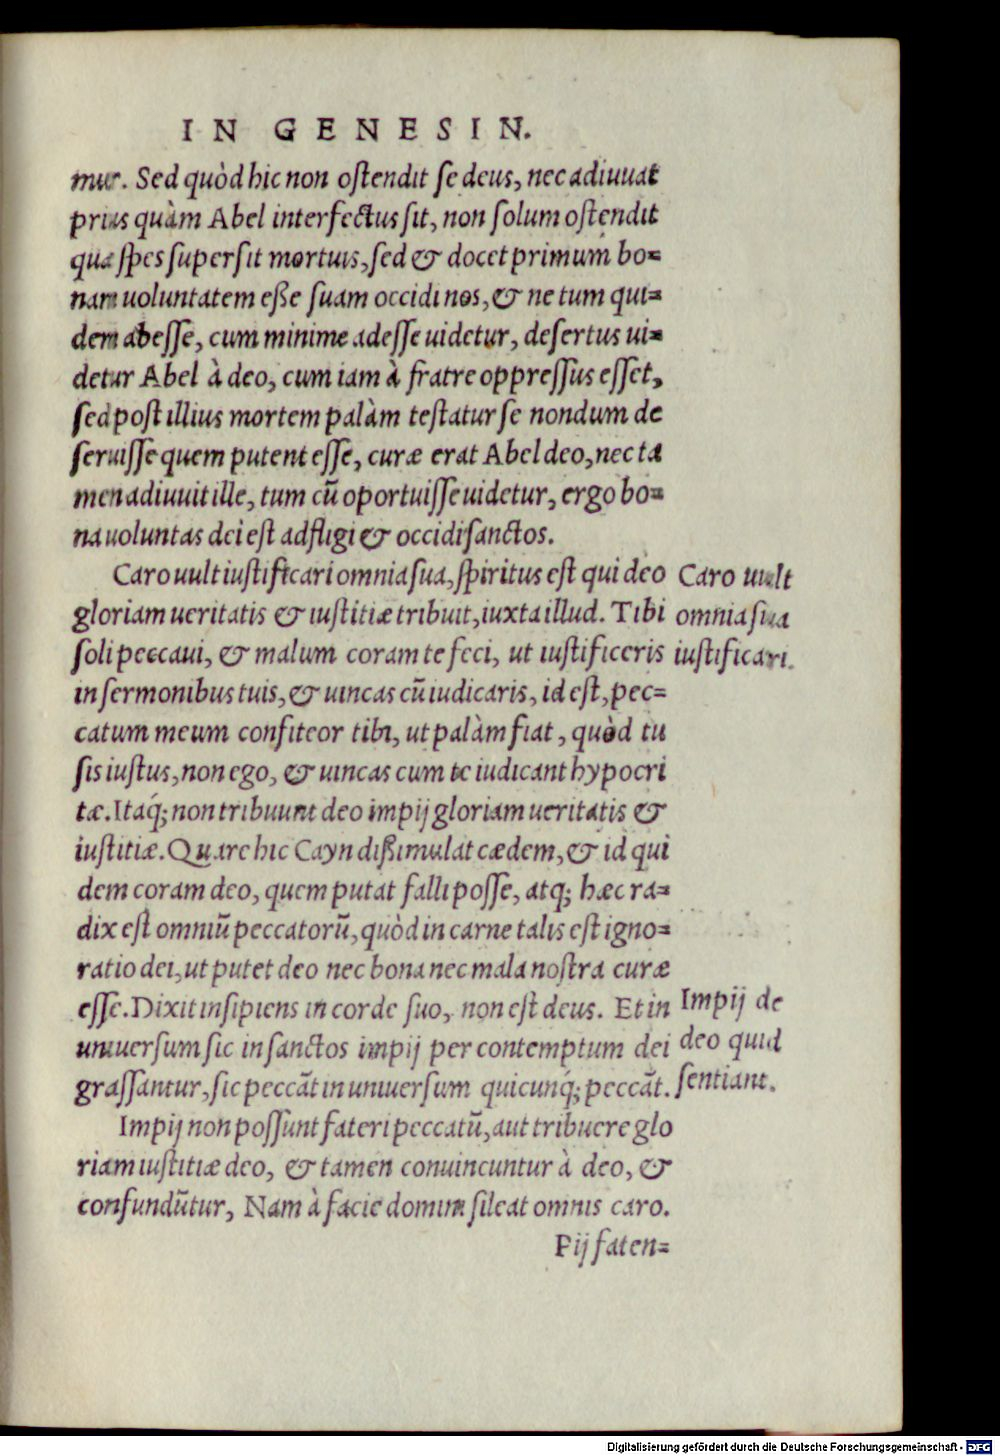 IN GENESIN.
mur. Sed quòd hic non oſtendit ſe deus, nec adiuuat
prius quàm Abel interfectus ſit, non ſolum oſtendit
quæ ſpes ſuperſit mortuis, ſed & docet primum bo=
nam uoluntatem eße ſuam occidi nos, & ne tum qui=
dem abeſſe, cum minime adeſſe uidetur, deſertus ui=
detur Abel à deo, cum iam à fratre oppreſſus eſſet,
ſed poſt illius mortem palàm teſtatur ſe nondum de
ſeruiſſe quem putent eſſe, curæ erat Abel deo, nec ta
men adiuuit ille, tum cũ oportuiſſe uidetur, ergo bo=
na uoluntas dei eſt adfligi & occidi ſanctos.
Caro uult iuſtificari omnia ſua, ſpiritus eſt qui deo
gloriam ueritatis & iuſtitiæ tribuit, iuxta illud. Tibi
ſoli peccaui, & malum coram te feci, ut iuſtificeris
in ſermonibus tuis, & uincas cũ iudicaris, id eſt, pec=
catum meum confiteor tibi, ut palàm fiat, quòd tu
ſis iuſtus, non ego, & uincas cum te iudicant hypocri
tæ. Itaq́; non tribuunt deo impij gloriam ueritatis &
iuſtitiæ. Quare hic Cayn dißimulat cædem, & id qui
dem coram deo, quem putat falli poſſe, atq; hæc ra=
dix eſt omniũ peccatorũ, quòd in carne talis eſt igno=
ratio dei, ut putet deo nec bona nec mala noſtra curæ
eſſe. Dixit inſipiens in corde ſuo, non eſt deus. Et in
uniuerſum ſic in ſanctos impij per contemptum dei
graſſantur, ſic peccãt in uniuerſum quicunq́; peccãt.
Impij non poſſunt fateri peccatũ, aut tribuere glo
riam iuſtitiæ deo, & tamen conuincuntur à deo, &
confundũtur, Nam à facie domini ſileat omnis caro.
Pij faten=
Caro uult
omnia ſua
iuſtificari.
Impij de
deo quid
ſentiant.
Digitalisierung gefördert durch die Deutsche Forschungsgemeinschaft - DFG